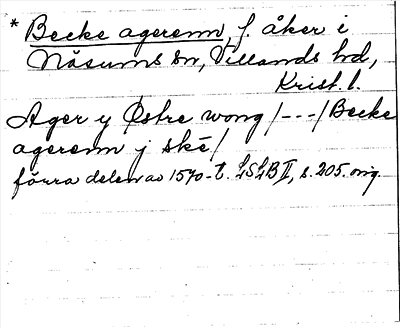 * Becke agerenn, f. åker i
Näsums sn, Villands hd,
Krist. l.
Ager y Østre wong /---/ Becke
agerenn j ské /
förra delen av 1570-t. LSLB II, s. 205. orig.